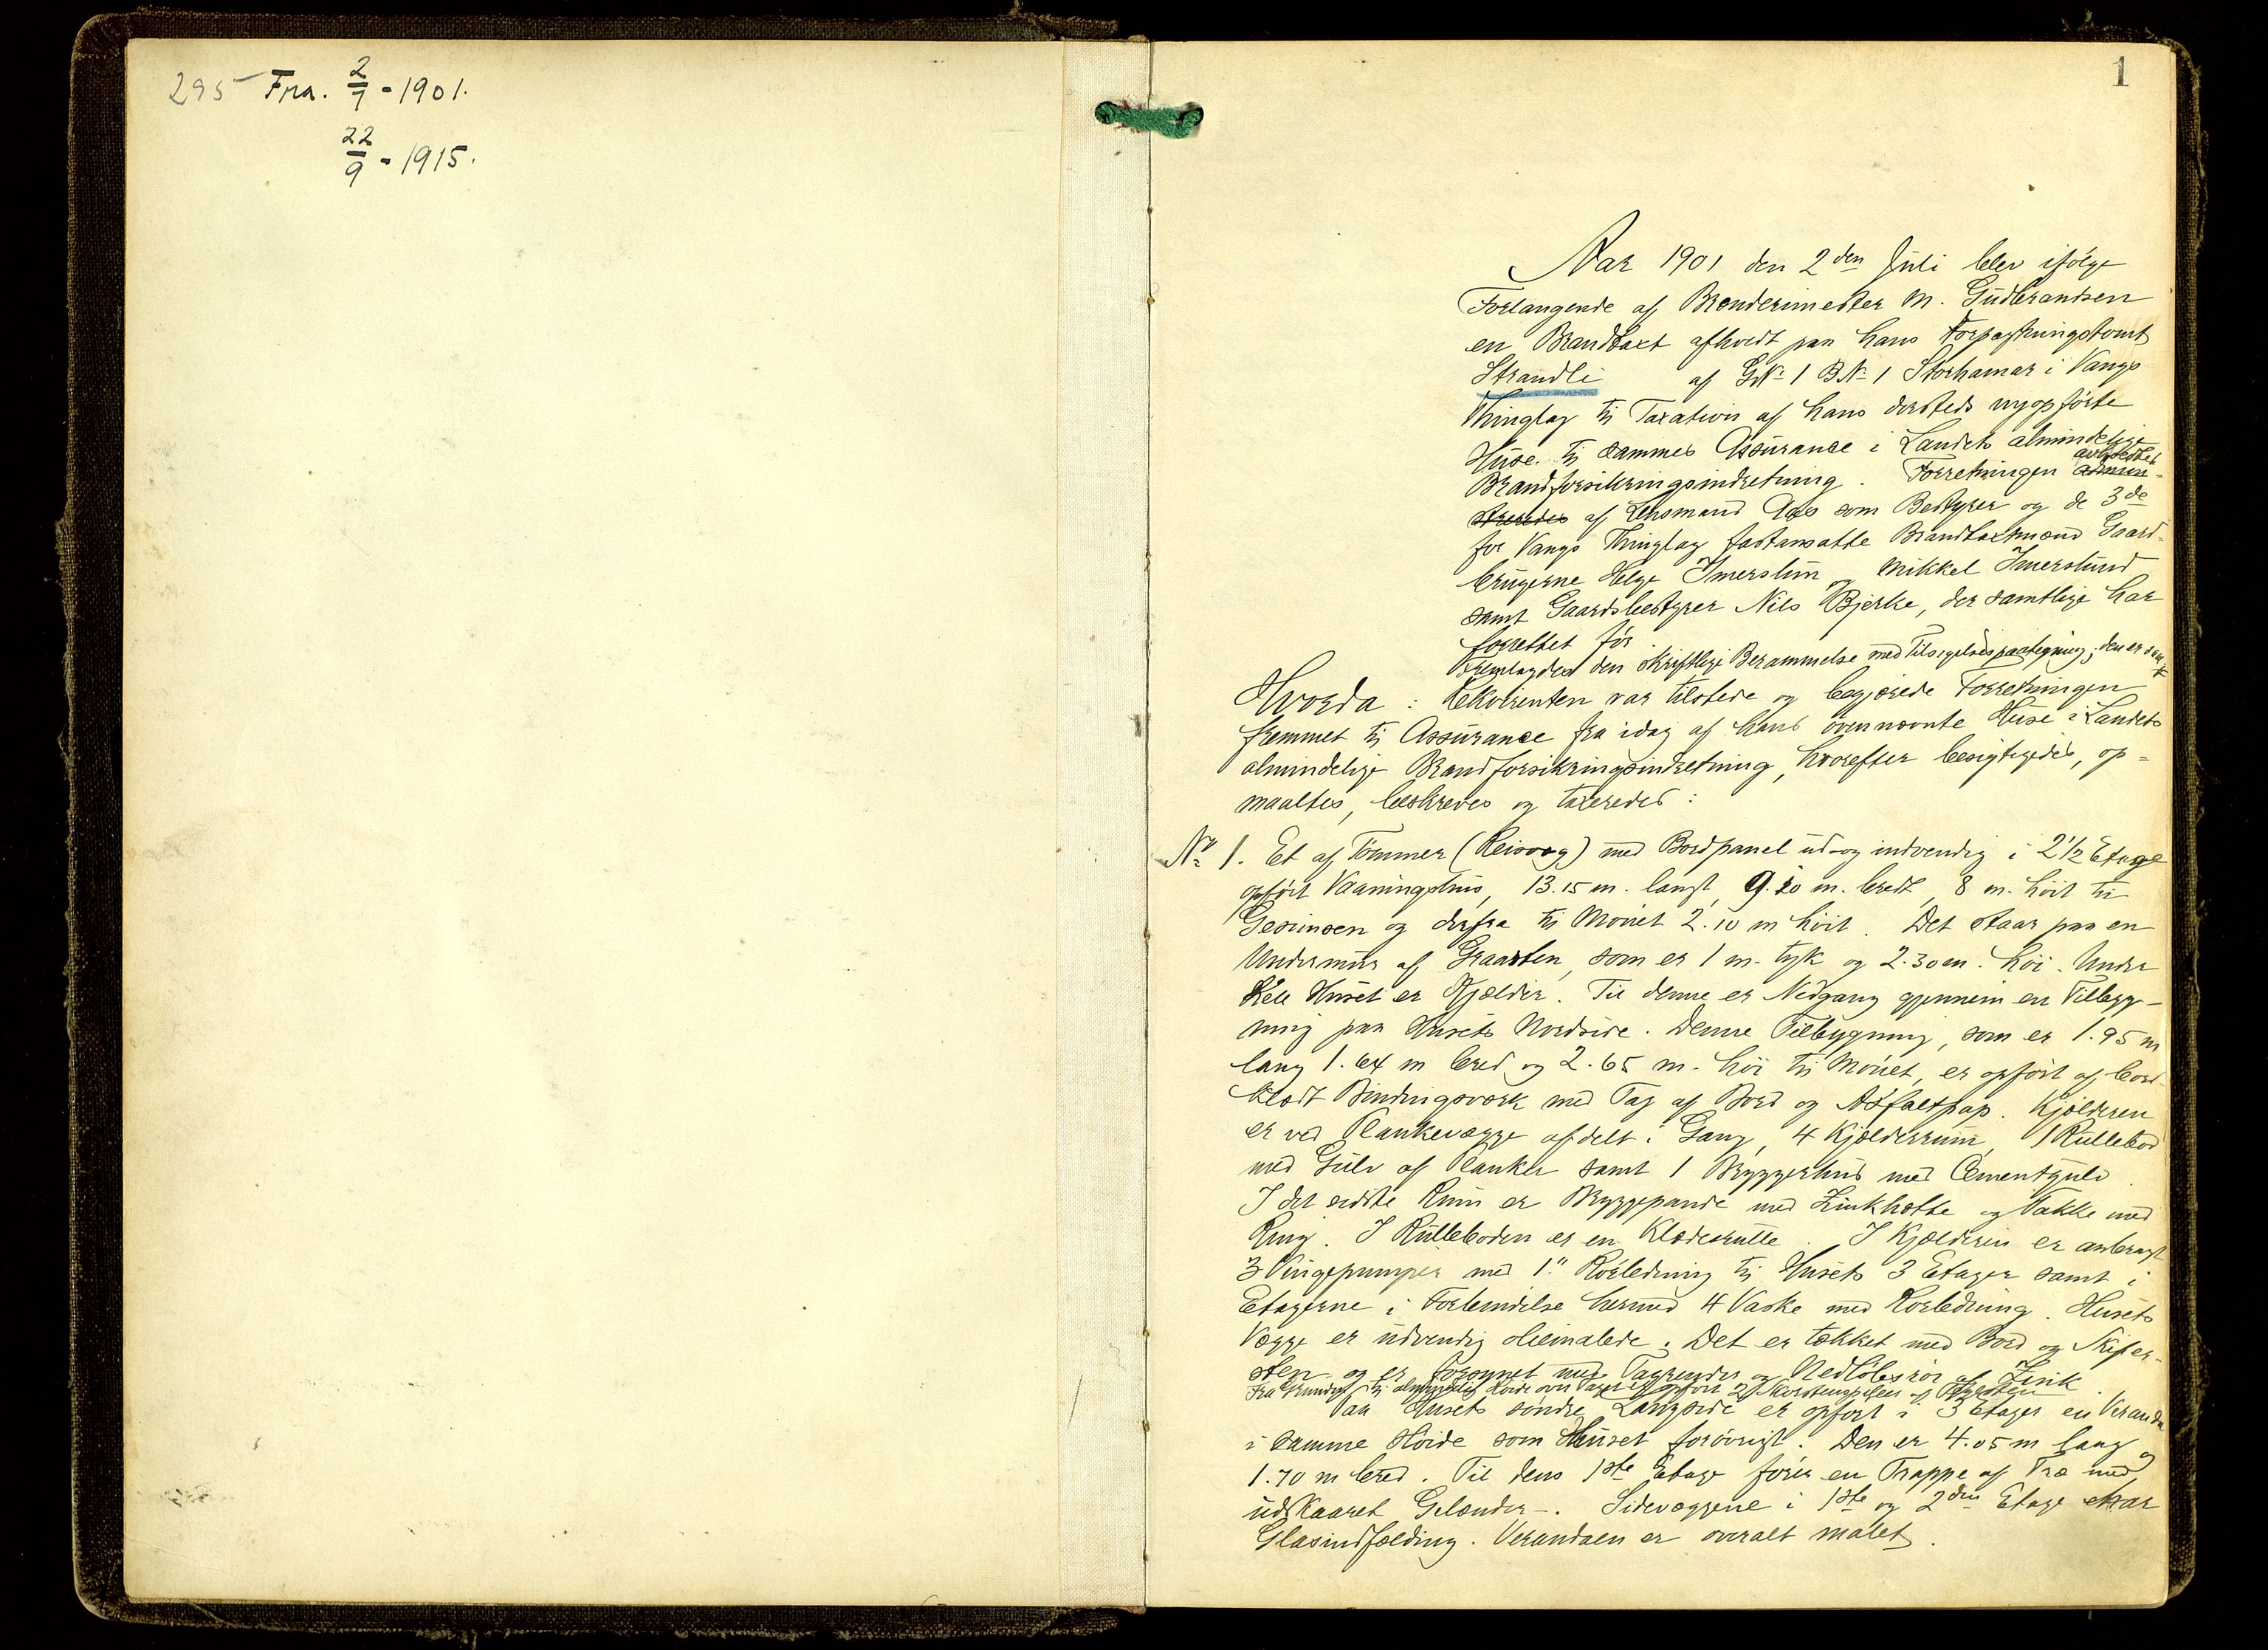 295 Fra. 2/7 - 1901.
22/9 - 1915.
1
Aar 1901 den 2den Juli blev ifølge
Forlangende af Brænderimester M. Gudbrandsen
en Brandtaxt afholdt paa hans Forpagtningstomt
Strandli af GNo 1 BNo 1 Storhamar i Vangs
Thinglag til Taxation af hans dersteds nyopførte
Huse til sammes Assurance i Landets almindelige
Brandforsikringsindretning. Forretningen admini-
streredes af Lensmand Aas som Bestyrer og de 3de
for Vangs Thinglag fastansatte Brandtaxtmænd Gaard-
brugerne Helge Imerslun og Mikkel Imerslund
samt Gaardsbestyrer Nils Bjerke, der samtlige har
forrettet før.
Fremlagdes den skriftlige Berammelse med Tilsigelsespaategning; den er
Hvorda: Rekvirenten var tilstede og begjærede Forretningen
fremmet til Assurance fra idag af hans ovennævnte Huse i Landets
almindelige Brandforsikringsindretning, hvorefter besigtigedes, op-
maaltes, beskreves og taxeredes:
No 1. Et af Tømmer (Reisvæg) med Bordpanel ud- og indvendig i 2 1/2 Etage
opført Vaaningshus, 13.15 m. langt, 9.20 m. bredt, 8 m. høit til
Gesimsen og derfra til Mønet 2.10 m høit. Det staar paa en
Undermur af Graasten, som er 1 m. tyk og 2.30 m. høi. Under
hele Huset er Kjælder. Til denne er Nedgang gjennem en Tilbyg-
ning paa Husets Nordside. Denne Tilbygning, som er 1.95 m
lang 1.64 m bred og 2.65 m. høi til Mønet, er opført af bord-
klædt Bindingsværk med Tag af Bord og Asfaltpap. Kjælderen
er ved Plankevægge afdelt i Gang, 4 Kjælderrum, 1 Rullebod
med Gulv af Planker samt 1 Bryggerhus med Cementgulv.
I det sidste Rum er Bryggepande med Zinkhætte og Takke med
Ring. I Rulleboden er en Klæderulle. I Kjælderen er anbragt
3 Vingepumper med 1" Rørledning til Husets 3 Etager samt i
Etagerne i Forbindelse hermed 4 Vaske med Rørledning. Husets
Vægge er udvendig oliemalede. Det er tækket med Bord og Skifer-
sten og er forsynet med Tagrender og Nedløbsrør af Zink.
Fra Grunden til almindelig Høide over Taget er opført 2 Skorstenspiber af
Paa Husets søndre Langside er opført i 3 Etager en Veranda
i samme Høide som Huset forøvrigt. Den er 4.05 m lang og
1.70 m bred. Til dens 1ste Etage fører en Trappe af Træ med
udskaaret Gelænder. Sidevæggene i 1ste og 2den Etage har
Glasindfælding. Verandaen er overalt malet.